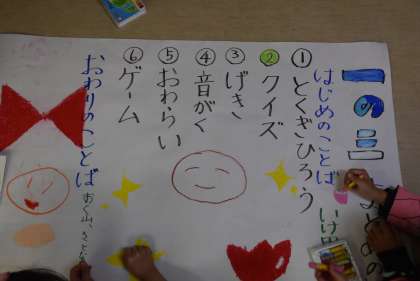 一の三
はじめのことば
①とくぎひろう
②クイズ
③げき
④音がく
⑤おわらい
⑥ゲーム
おわりのことば